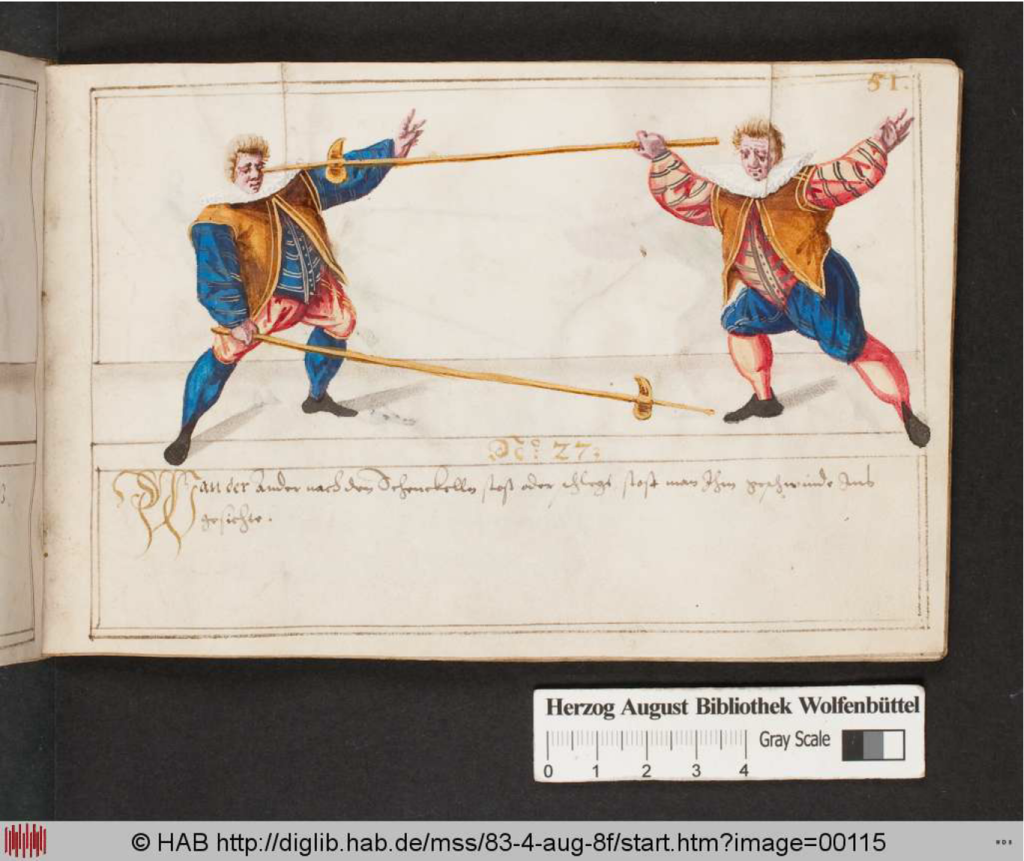 51.
No: 27:
Wan der Ander nach den Schenckelln stost oder schlegt stost man Ihm geschwinde Ins
gesichte.
3
Herzog August Bibliothek Wolfenbüttel
Gray Scale
0 1 2 3 4
© HAB http://diglib.hab.de/mss/83-4-aug-8f/start.htm?image=00115